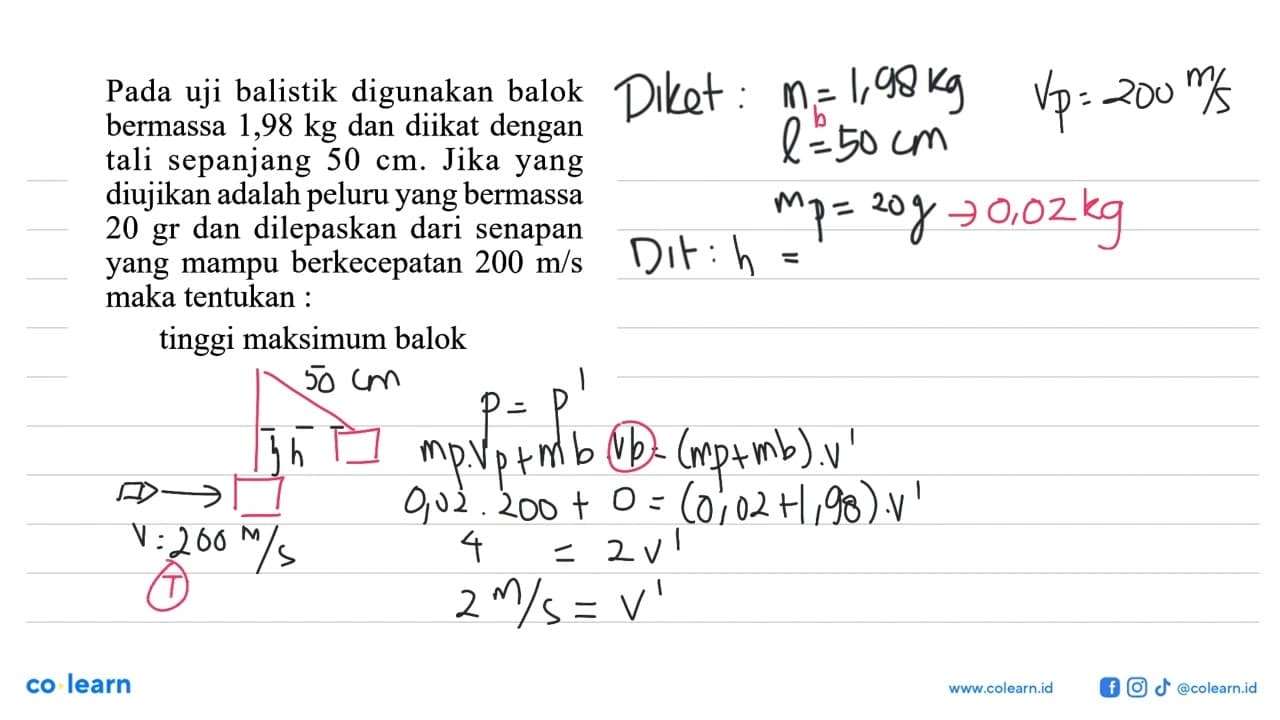 Pada uji balistik digunakan balok
bermassa 1,98 kg dan diikat dengan
tali sepanjang 50 cm. Jika yang
diujikan adalah peluru yang bermassa
20 gr dan dilepaskan dari senapan
yang mampu berkecepatan 200 m/s
maka tentukan :
tinggi maksimum balok
Diket : m_b = 1,98 kg Vp = 200 m/s
l = 50 cm
mp = 20 g → 0,02 kg
Dit : h =
50 cm
h
V = 200 m/s
T
p = p'
mp.Vp + mb Vb = (mp + mb).v'
0,02 . 200 + 0 = (0,02 + 1,98).v'
4 = 2 v'
2 m/s = v'
co learn
www.colearn.id @colearn.id